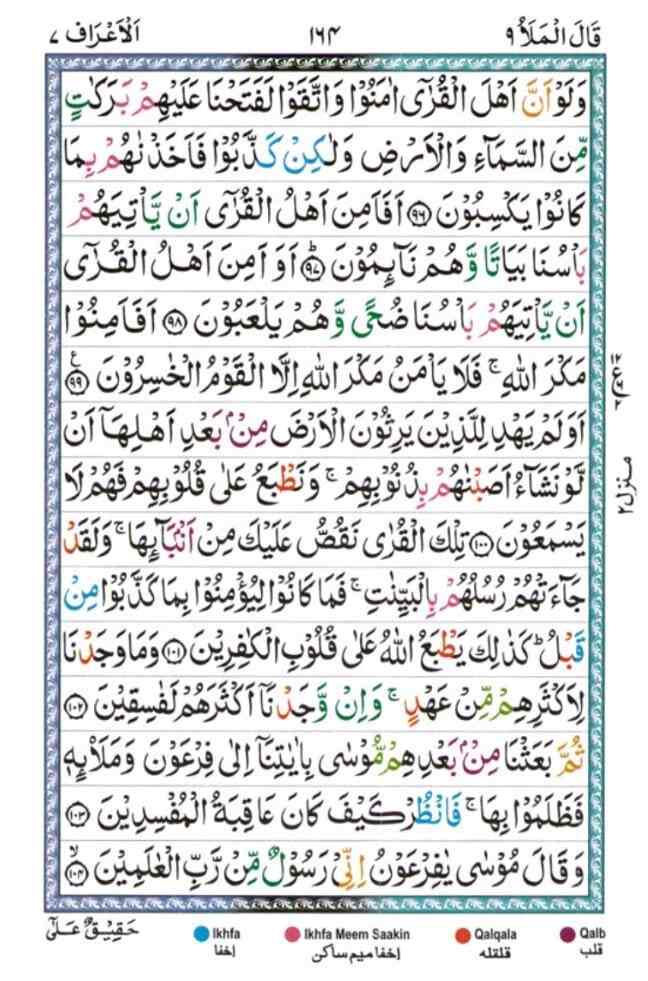 قَالَ الْمَلَاُ ۹ ۱۶۴ اَلْاَعْرَاف ۷
وَلَوْ اَنَّ اَهْلَ الْقُرٰٓى اٰمَنُوْا وَاتَّقَوْا لَفَتَحْنَا عَلَيْهِمْ بَرَكٰتٍ
مِّنَ السَّمَآءِ وَالْاَرْضِ وَلٰكِنْ كَذَّبُوْا فَاَخَذْنٰهُمْ بِمَا
كَانُوْا يَكْسِبُوْنَ ۝۹۶ اَفَاَمِنَ اَهْلُ الْقُرٰٓى اَنْ يَّاْتِيَهُمْ
بَاْسُنَا بَيَاتًا وَّهُمْ نَآئِمُوْنَ ۝ؕ۹۷ اَوَ اَمِنَ اَهْلُ الْقُرٰٓى
اَنْ يَّاْتِيَهُمْ بَاْسُنَا ضُحًى وَّهُمْ يَلْعَبُوْنَ ۝۹۸ اَفَاَمِنُوْا
مَكْرَ اللّٰهِ ۚ فَلَا يَاْمَنُ مَكْرَ اللّٰهِ اِلَّا الْقَوْمُ الْخٰسِرُوْنَ ۝۹۹ ع
اَوَلَمْ يَهْدِ لِلَّذِيْنَ يَرِثُوْنَ الْاَرْضَ مِنْۢ بَعْدِ اَهْلِهَاۤ اَنْ
لَّوْ نَشَآءُ اَصَبْنٰهُمْ بِذُنُوْبِهِمْ ۚ وَنَطْبَعُ عَلٰى قُلُوْبِهِمْ فَهُمْ لَا
يَسْمَعُوْنَ ۝۱۰۰ تِلْكَ الْقُرٰى نَقُصُّ عَلَيْكَ مِنْ اَنْۢبَآئِهَا ۚ وَلَقَدْ
جَآءَتْهُمْ رُسُلُهُمْ بِالْبَيِّنٰتِ ۚ فَمَا كَانُوْا لِيُؤْمِنُوْا بِمَا كَذَّبُوْا مِنْ
قَبْلُ ؕ كَذٰلِكَ يَطْبَعُ اللّٰهُ عَلٰى قُلُوْبِ الْكٰفِرِيْنَ ۝۱۰۱ وَمَا وَجَدْنَا
لِاَكْثَرِهِمْ مِّنْ عَهْدٍ ۚ وَاِنْ وَّجَدْنَاۤ اَكْثَرَهُمْ لَفٰسِقِيْنَ ۝۱۰۲
ثُمَّ بَعَثْنَا مِنْۢ بَعْدِهِمْ مُّوْسٰى بِاٰيٰتِنَاۤ اِلٰى فِرْعَوْنَ وَمَلَا۟ئِهٖ
فَظَلَمُوْا بِهَا ۚ فَانْظُرْ كَيْفَ كَانَ عَاقِبَةُ الْمُفْسِدِيْنَ ۝۱۰۳
وَقَالَ مُوْسٰى يٰفِرْعَوْنُ اِنِّىْ رَسُوْلٌ مِّنْ رَّبِّ الْعٰلَمِيْنَ ۝ۙ۱۰۴
منزل ۲
حَقِيْقٌ عَلٰٓى
Ikhfa Ikhfa Meem Saakin Qalqala Qalb
إخفا إخفا ميم ساكن قلقله قلب